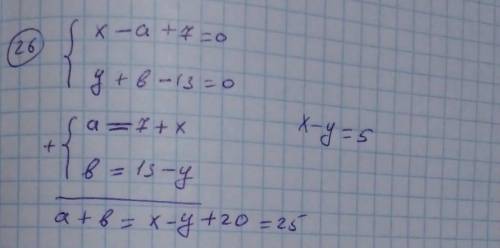 26
x - a + 7 = 0
y + b - 13 = 0
+ a = 7 + x
b = 13 - y
x - y = 5
a + b = x - y + 20 = 25